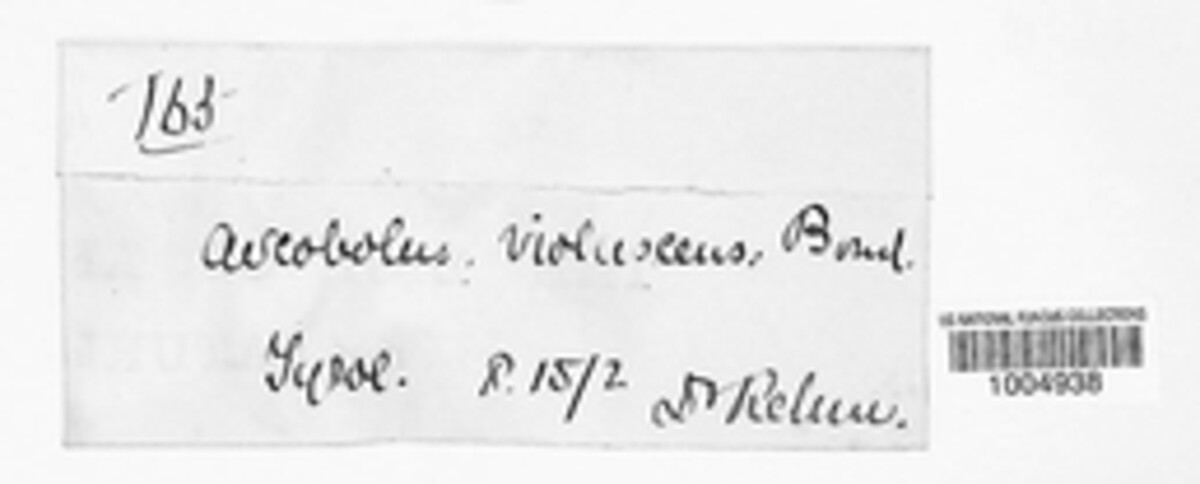 163
Ascobolus. violascens, Boud.
Tyrol. R. 15/2 Dr Rehm.
US NATIONAL FUNGUS COLLECTIONS
1004938